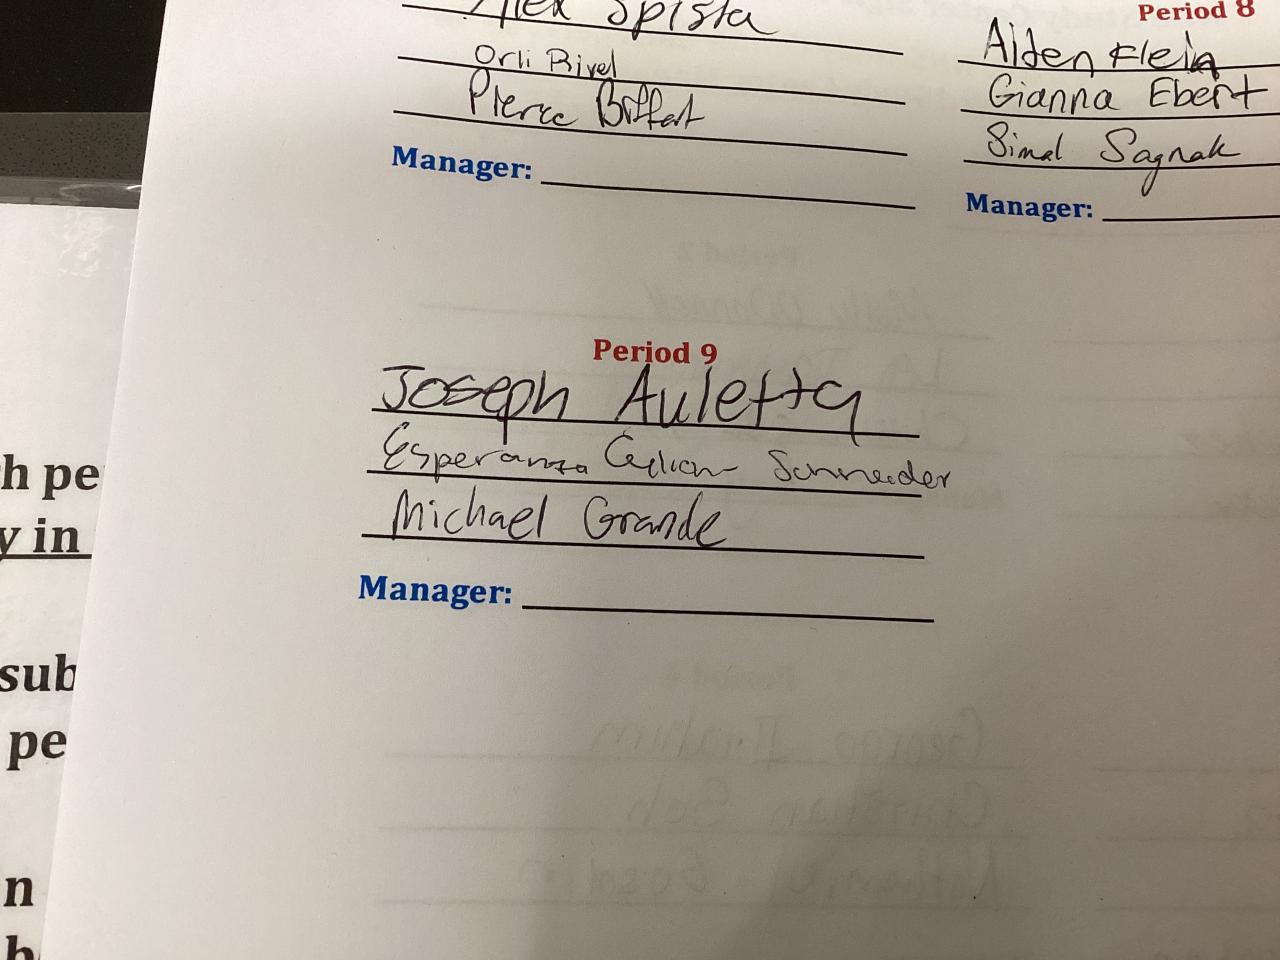 Alex Spista
Orli Rivel
Pierce
Manager:
Period 8
Aiden Klein
Gianna Ebert
Simal Sagnak
Manager:
Period 9
Joseph Auletta
Esperanza Schneider
Michael Grande
Manager:
h pe
y in
sub
pe
n
b